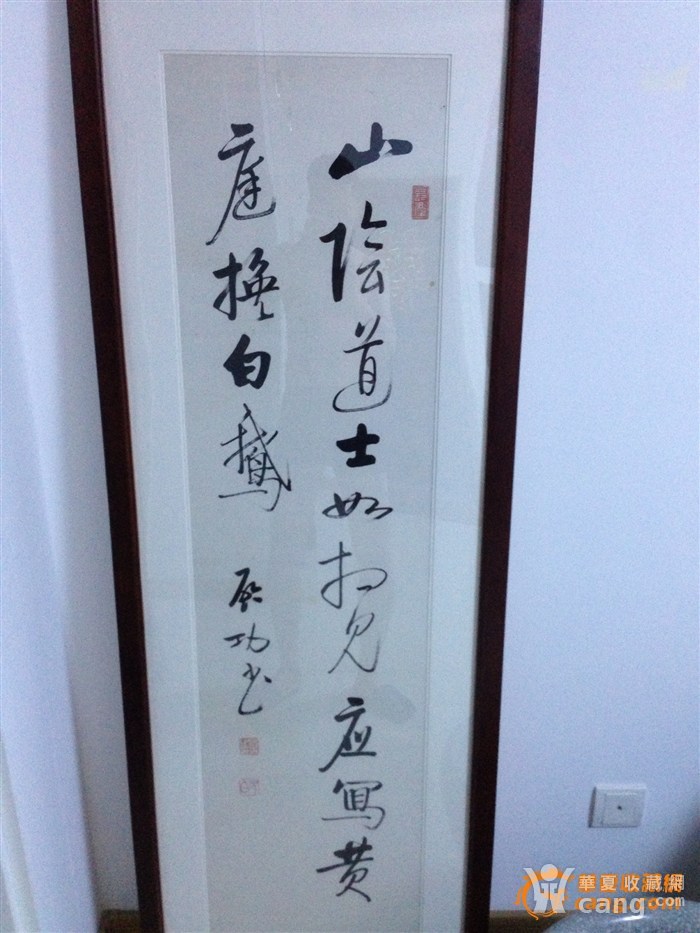 山陰道士如相见应写黄
庭换白鹅
启功书
華夏收藏網
cang.com